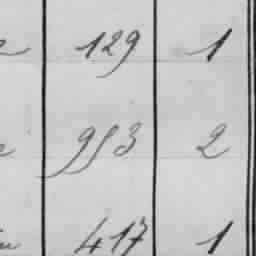 129 1
953 2
417 1